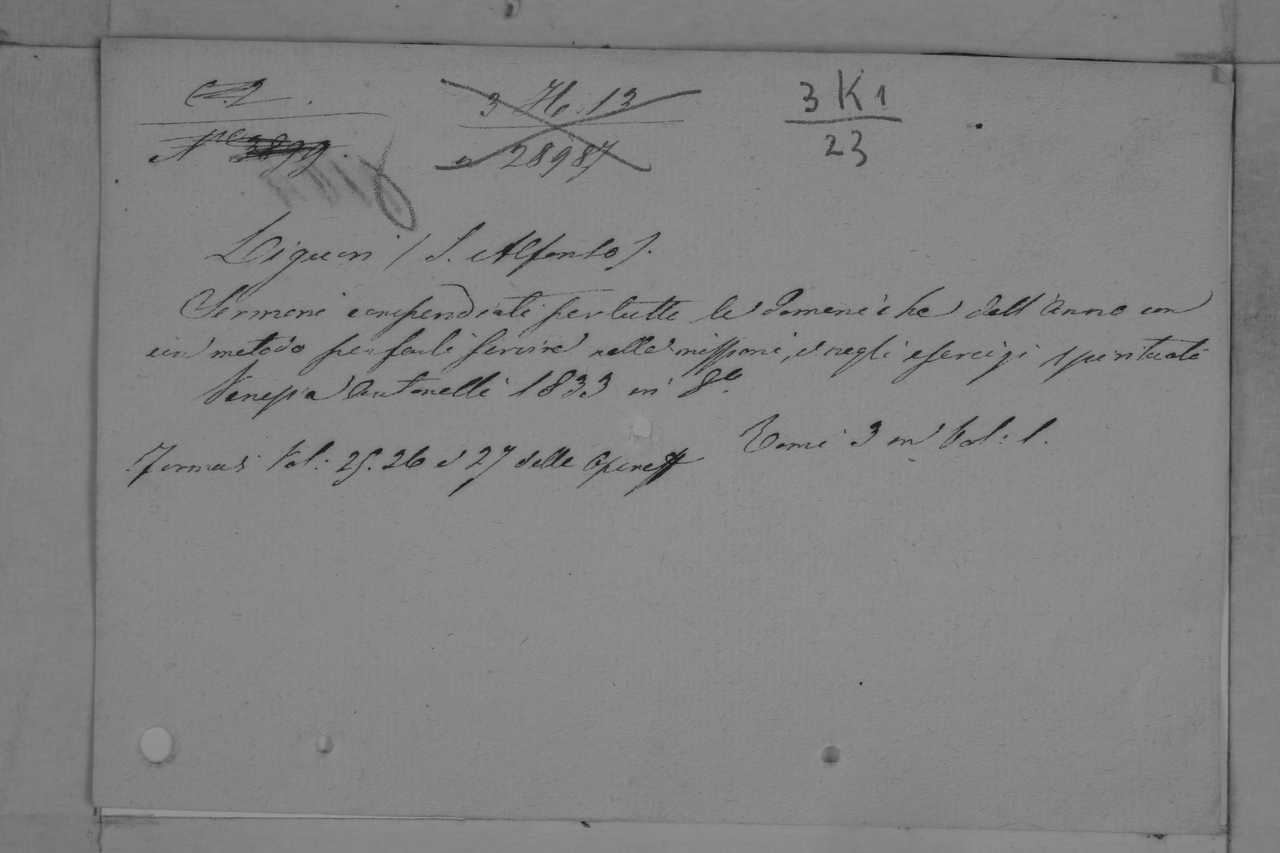 3 H. 13
28987
3 K 1
23
Liguori (S. Alfonso).
Sermoni compendiati per tutte le domeniche dell'anno con
un metodo per farli servire nelle missioni, e negli esercizi spirituali
Venezia Antonelli 1833 in 8º.
Tomi 3 in Vol: 1.
Formasi Vol: 25. 26 e 27 delle Opere